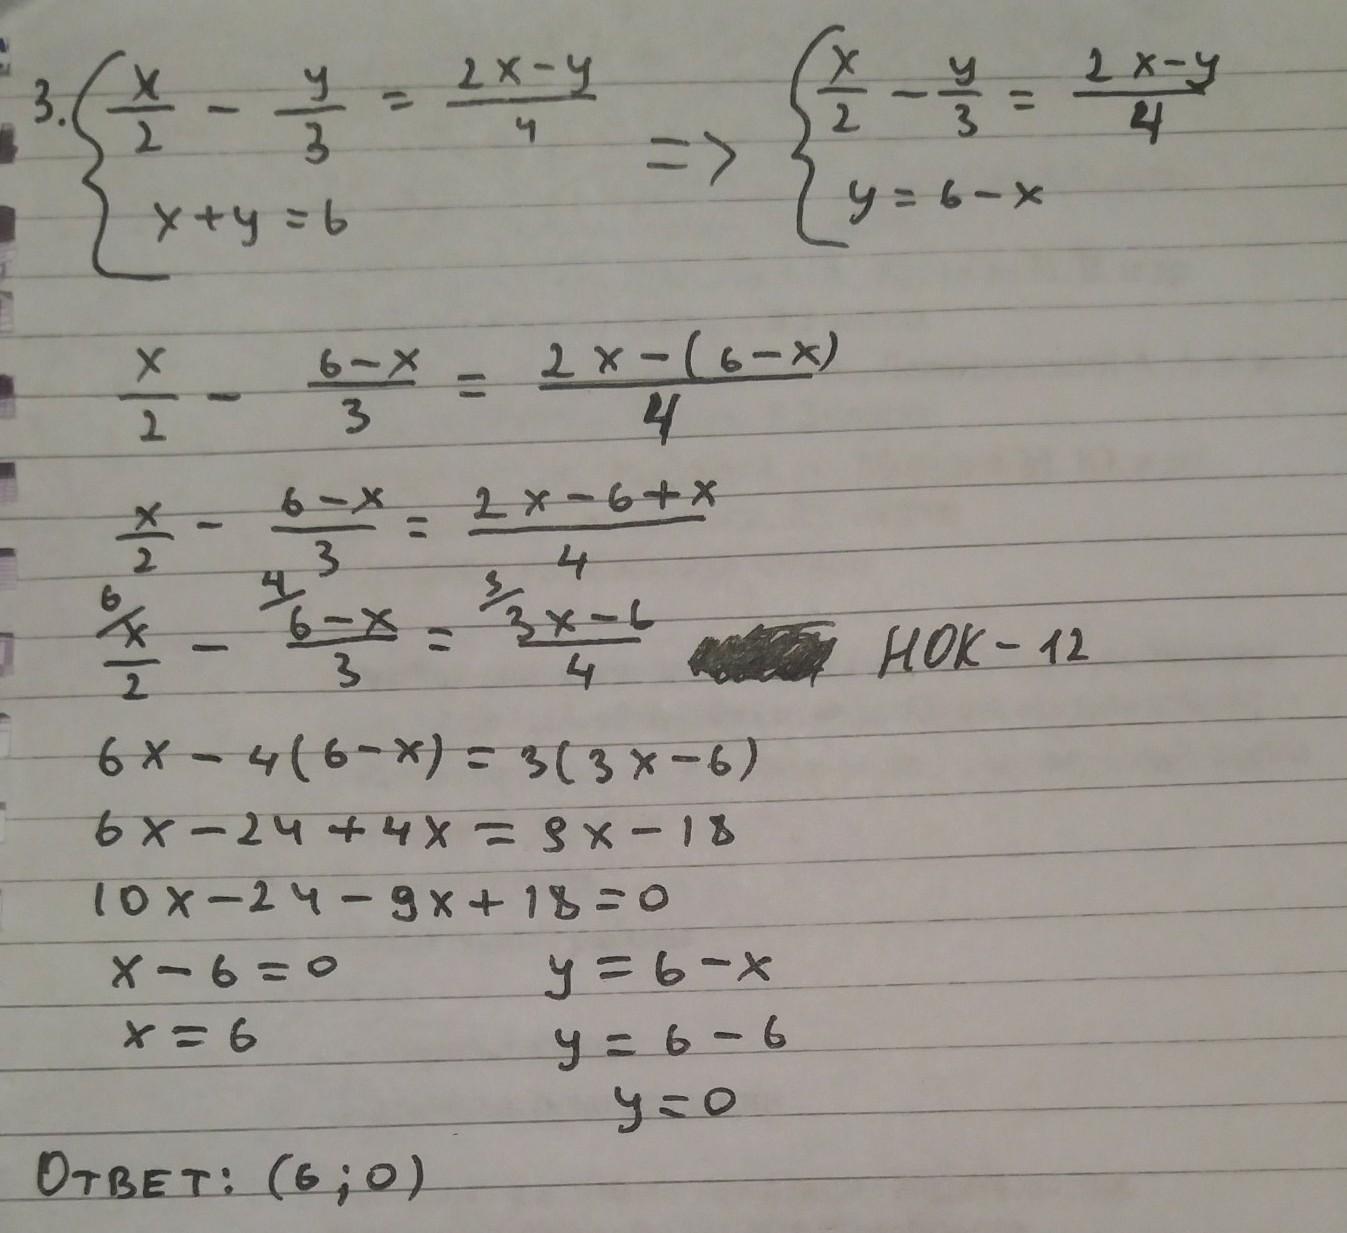 3. { x/2 - y/3 = 2x-y/4 => { x/2 - y/3 = 2x-y/4
x+y=6 y=6-x
x/2 - 6-x/3 = 2x-(6-x)/4
x/2 - 6-x/3 = 2x-6+x/4
6/ x/2 - 4/ 6-x/3 = 3/ 3x-6/4 НОК-12
6x-4(6-x)=3(3x-6)
6x-24+4x=9x-18
10x-24-9x+18=0
x-6=0 y=6-x
x=6 y=6-6
y=0
Ответ: (6;0)